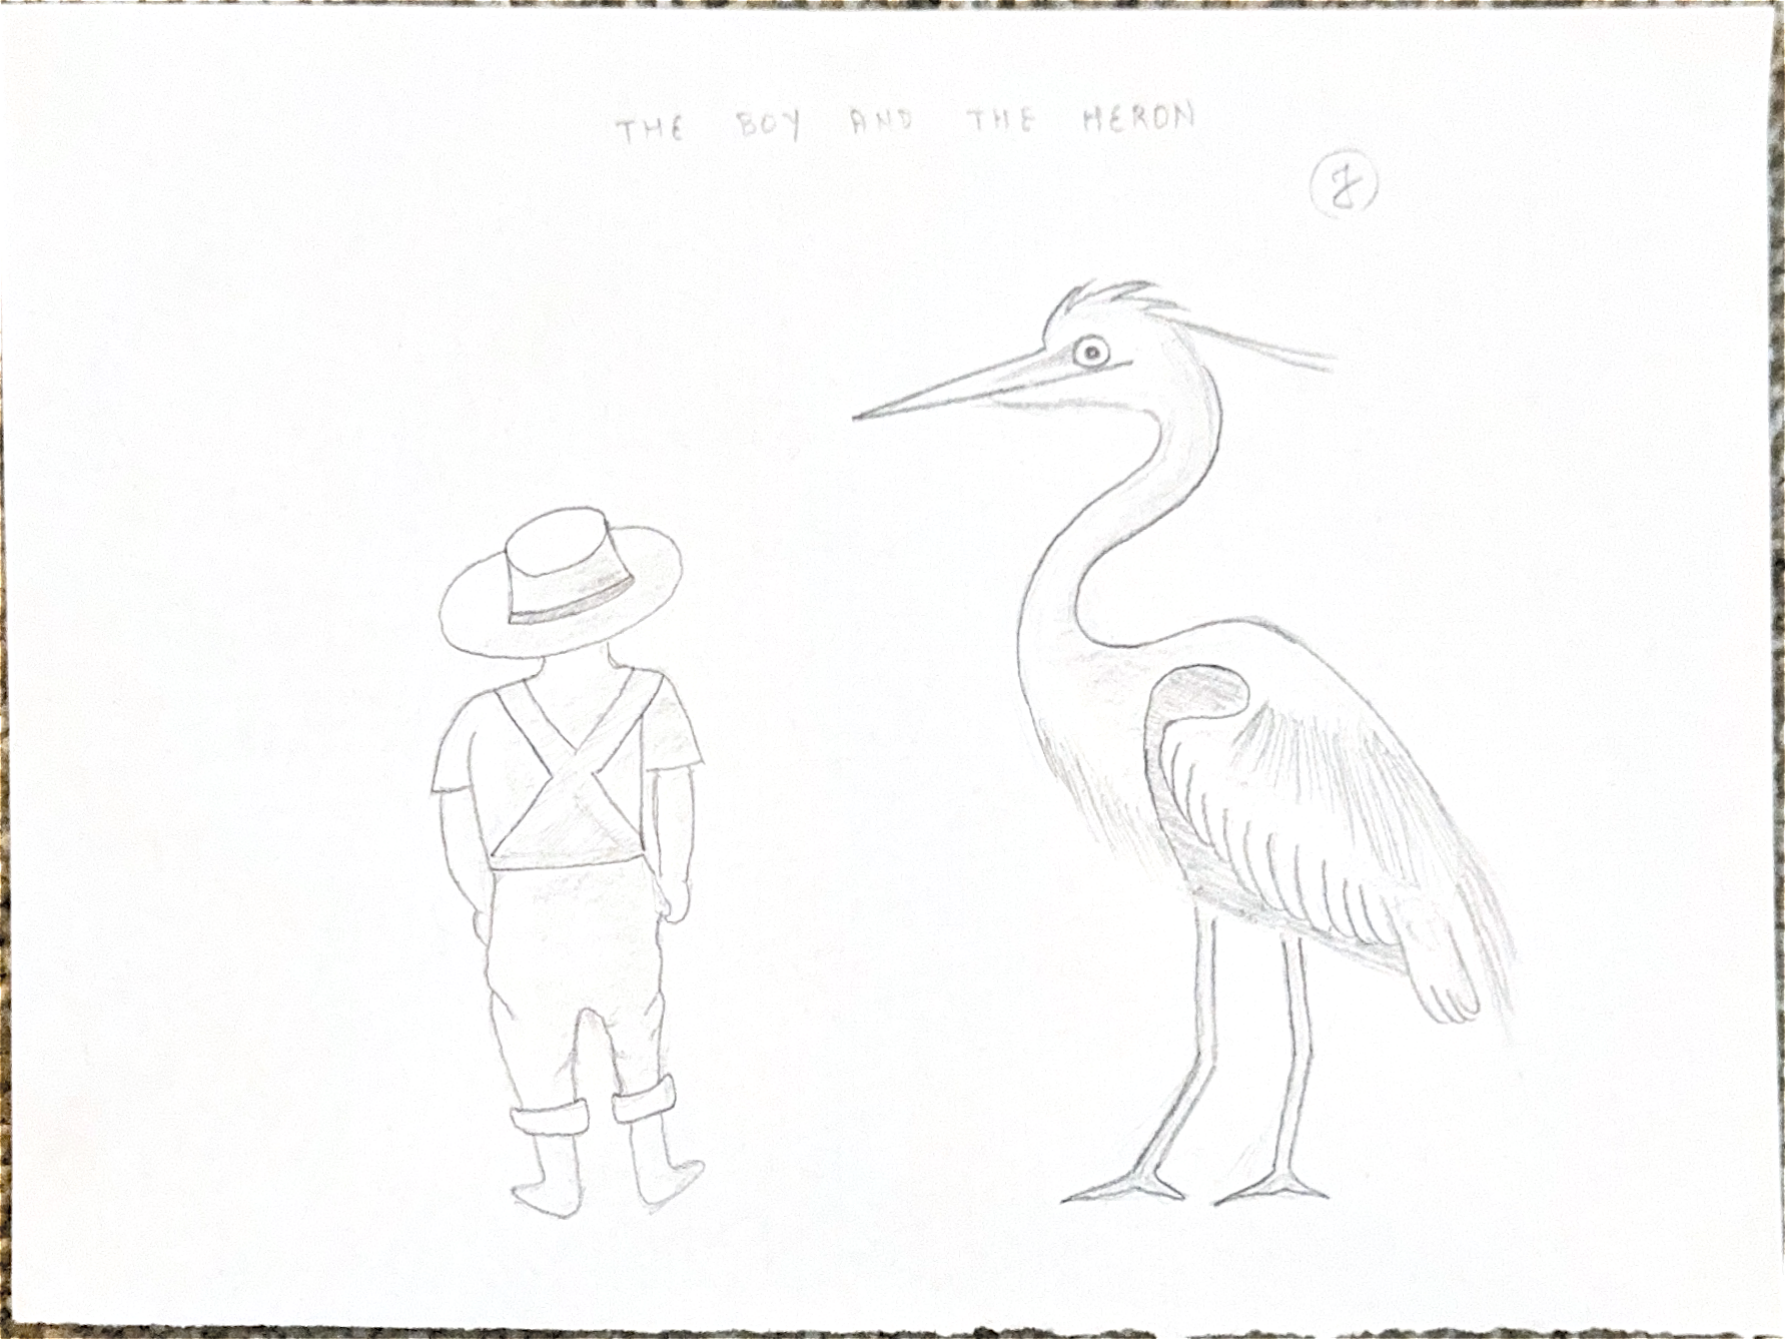 THE BOY AND THE HERON